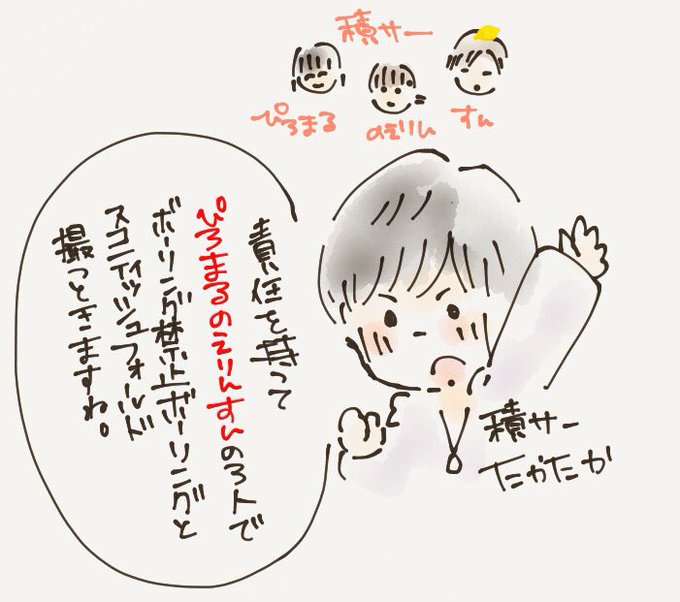 積サー
ぴろまる
のえりん
すん
責任を持って
ぴろまるのえりんすんの3人で
ボーリング禁止ボーリングと
スコティッシュフォールド
撮っときますね。
積サー
たかたか